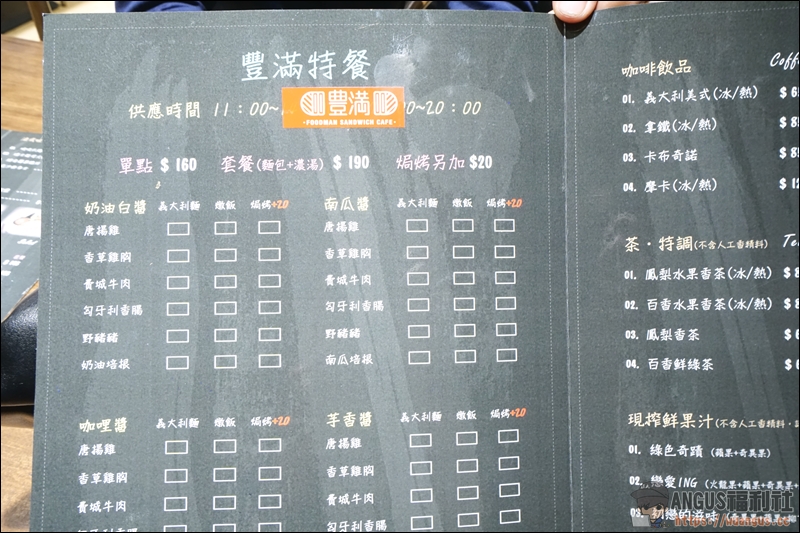 豐滿特餐
供應時間 11：00~
豊満
-FOODMAN SANDWICH CAFE-
0~20：00
單點 $ 160 套餐(麵包+濃湯) $ 190 焗烤另加 $20
奶油白醬 義大利麵 燉飯 焗烤+20
唐揚雞
香草雞胸
費城牛肉
匈牙利香腸
野豬豬
奶油培根
南瓜醬 義大利麵 燉飯 焗烤+20
唐揚雞
香草雞胸
費城牛肉
匈牙利香腸
野豬豬
南瓜培根
咖哩醬 義大利麵 燉飯 焗烤+20
唐揚雞
香草雞胸
費城牛肉
芋香醬 義大利麵 燉飯 焗烤+20
唐揚雞
香草雞胸
費城牛肉
匈牙利香腸
咖啡飲品 Coff
01. 義大利美式(冰/熱) $ 6
02. 拿鐵(冰/熱) $ 8
03. 卡布奇諾 $ 8
04. 摩卡(冰/熱) $ 12
茶．特調(不含人工香精料) Te
01. 鳳梨水果香茶(冰/熱) $ 8
02. 百香水果香茶(冰/熱) $ 8
03. 鳳梨香茶 $ 6
04. 百香鮮綠茶 $ 6
現搾鮮果汁(不含人工香精料．
01. 綠色奇蹟 (蘋果+奇異果)
02. 戀愛ING (火龍果+蘋果+奇異果
03. 初戀的滋味
ANGUS福利社